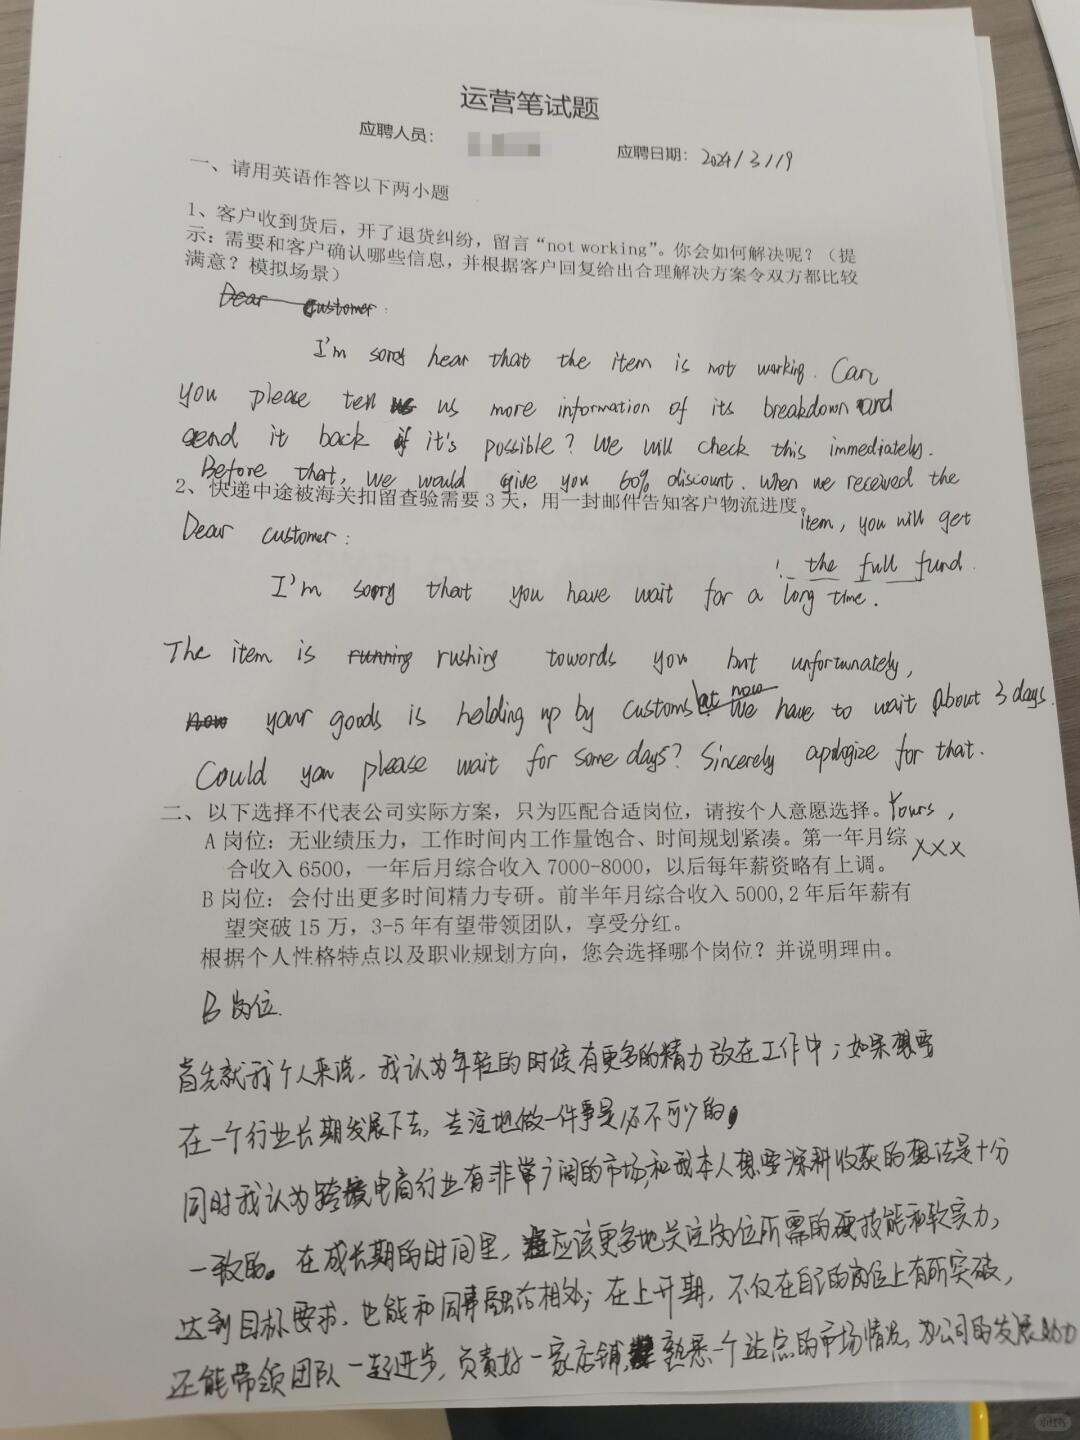 运营笔试题
应聘人员：
应聘日期：2024/3/19
一、请用英语作答以下两小题
1、客户收到货后，开了退货纠纷，留言“not working”。你会如何解决呢？（提
示：需要和客户确认哪些信息，并根据客户回复给出合理解决方案令双方都比较
满意？模拟场景）
Dear customer:
I'm sorry hear that the item is not working. Can
you please tell us more information of its breakdown and
send it back if it's possible? We will check this immediately.
Before that, we would give you 60% discount. When we received the
item, you will get
the full fund.
2、快递中途被海关扣留查验需要3天，用一封邮件告知客户物流进度。
Dear customer:
I'm sorry that you have wait for a long time.
The item is running rushing towards you but unfortunately,
now your goods is holding up by customs but now We have to wait about 3 days.
Could you please wait for some days? Sincerely apologize for that.
Yours,
XXX
二、以下选择不代表公司实际方案，只为匹配合适岗位，请按个人意愿选择。
A 岗位：无业绩压力，工作时间内工作量饱合、时间规划紧凑。第一年月综
合收入6500，一年后月综合收入7000-8000，以后每年薪资略有上调。
B 岗位：会付出更多时间精力专研。前半年月综合收入5000,2年后年薪有
望突破15万，3-5年有望带领团队，享受分红。
根据个人性格特点以及职业规划方向，您会选择哪个岗位？并说明理由。
B 岗位.
首先就我个人来说，我认为年轻的时候有更多的精力放在工作中；如果想要
在一个行业长期发展下去，专注地做一件事是必不可少的。
同时我认为跨境电商行业有非常广阔的市场，和我本人想要深耕收获的想法是十分
一致的。在成长期的时间里，应该更多地关注岗位所需的硬技能和软实力，
达到目标要求，也能和同事融洽相处；在上升期，不仅在自己的岗位上有所突破，
还能带领团队一起进步，负责好一家店铺，熟悉一个站点的市场情况，为公司的发展助力